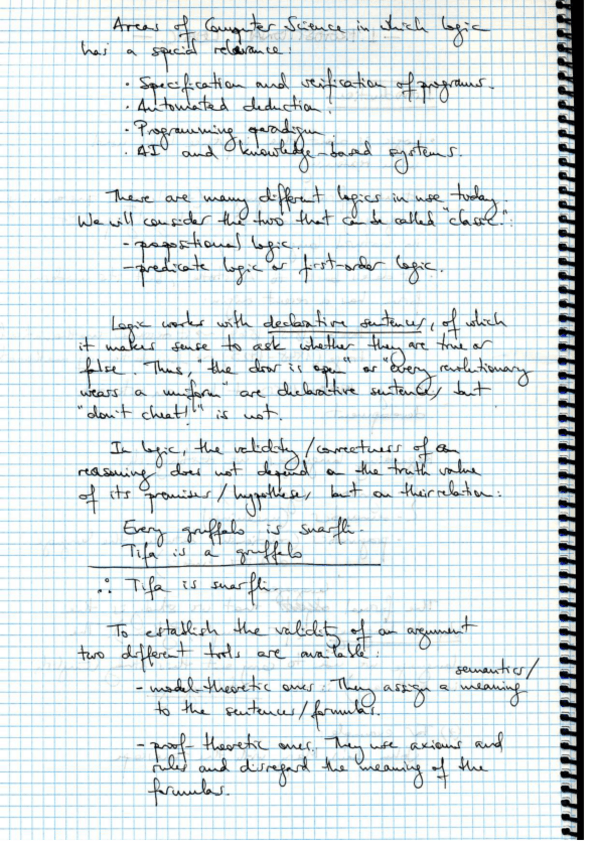 Areas of Computer Science in which logic
has a special relevance:
· Specification and verification of programs.
· Automated deduction.
· Programming paradigm.
· AI and knowledge-based systems.
There are many different logics in use today.
We will consider the two that can be called "classic":
- propositional logic.
- predicate logic or first-order logic.
Logic works with declarative sentences, of which
it makes sense to ask whether they are true or
false. Thus, "the door is open" or "every revolutionary
wears a uniform" are declarative sentences, but
"don't cheat!" is not.
In logic, the validity/correctness of a
reasoning does not depend on the truth value
of its premises/hypotheses, but on their relation:
Every gruffalo is snarfli.
Tifa is a gruffalo
∴ Tifa is snarfli.
To establish the validity of an argument
two different tools are available:
semantics/
- model-theoretic ones. They assign a meaning
to the sentences/formulas.
- proof-theoretic ones. They use axioms and
rules and disregard the meaning of the
formulas.